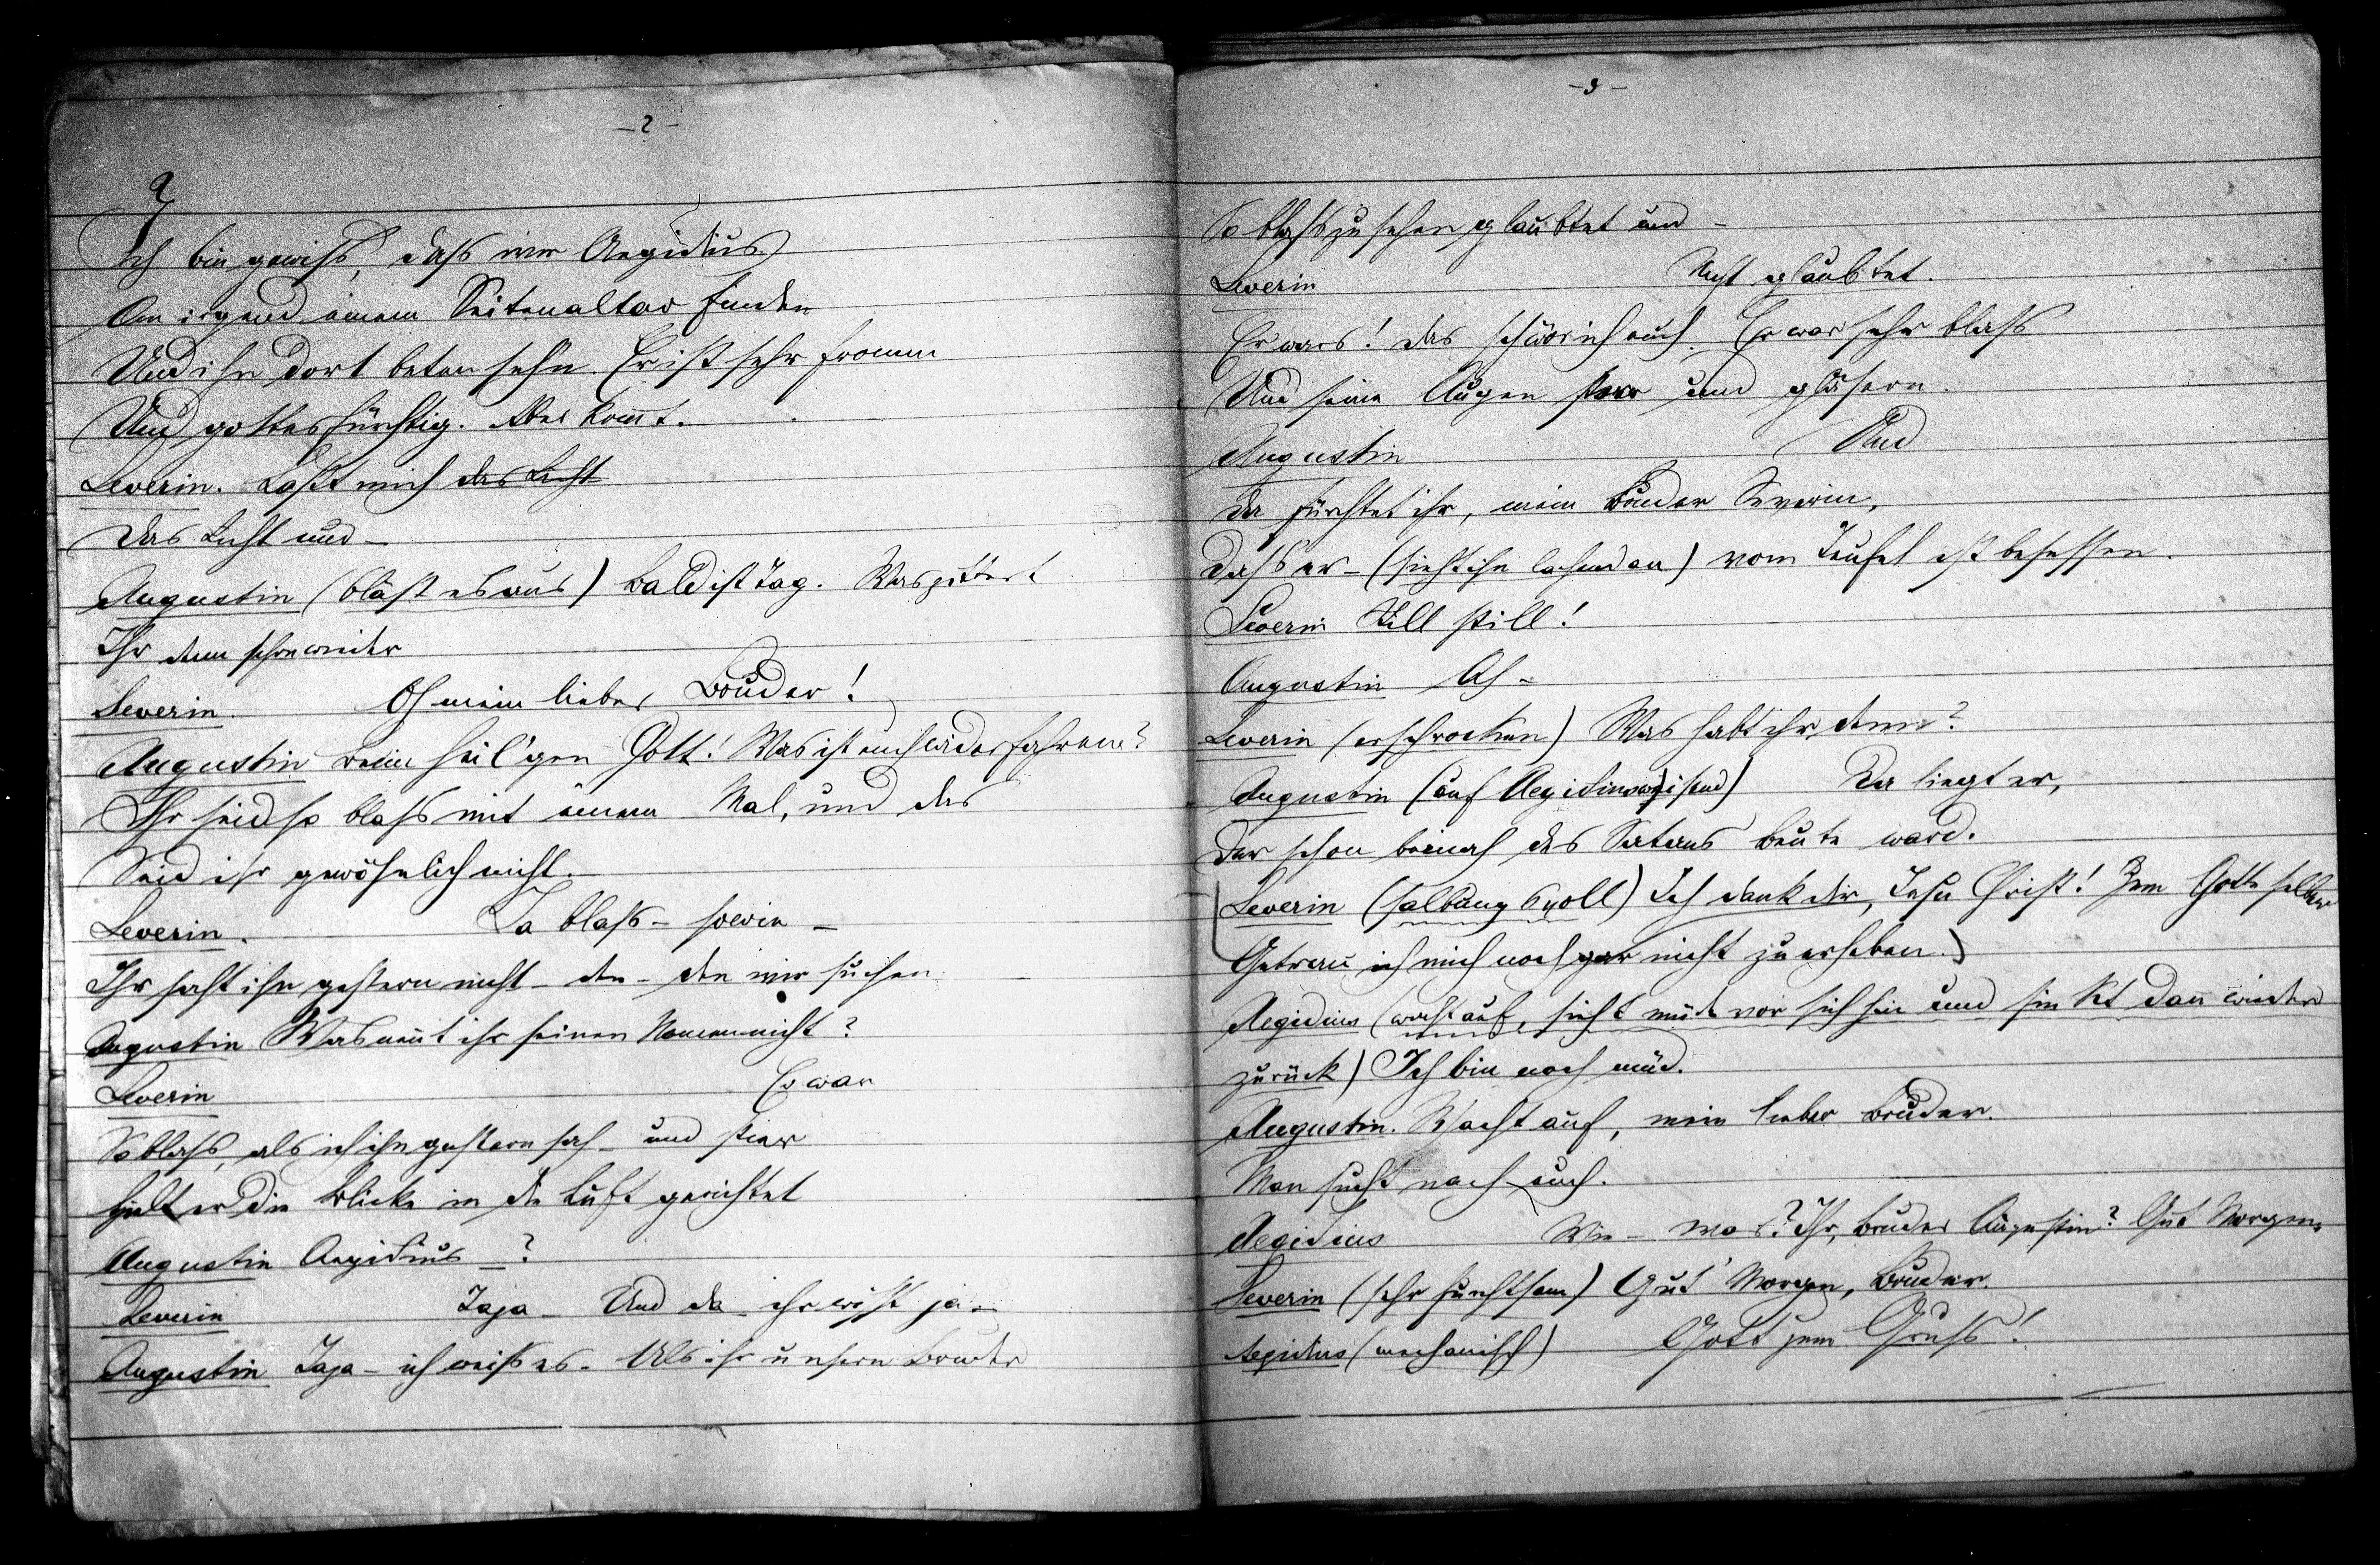 - 2 -
Ich bin gewiss, dass wir Aegidius
An irgend einem Seitenaltar finden
Und ihn dort beten sehn. Er ist sehr fromm
Und gottesfürchtig. Aber kom̅t.
Severin. Lasst mich das Licht
Das Licht und -
Augustin (bläst es aus) Bald ist Tag. Was zittert
Ihr denn schon wieder
Severin. Oh mein lieber Bruder!
Augustin Beim heil'gen Gott! Was ist euch widerfahren?
Ihr seid so blass mit einem Mal, und das
Seid ihr gewöhnlich nicht.
Severin. Ja blass - so wie -
Ihr saht ihn gestern nicht - den - den wir suchen.
Augustin Was nen̅t ihr seinen Namen nicht?
Severin Er war
So blass, als ich ihn gestern sah - und stier
Hielt er die Blicke in die Luft gerichtet
Augustin Aegidius -?
Severin Jaja - Und da - ihr wisst ja -
Augustin Jaja - ich weiss es. Als ihr unsern Bruder
- 3 -
So blass zu sehen glaubtet und -
Severin Nicht glaubtet.
Er wars! das schwör ich euch. Er war sehr blass
Und seine Augen starr und gläsern.
Augustin Und
Da fürchtet ihr, mein Bruder Severin,
Dass er - (sieht ihn lachend an) vom Teufel ist besessen.
Severin Still still!
Augustin Ah -
Severin (erschrocken) Was habt ihr denn?
Augustin (auf Aegidius weisend) Da liegt er,
Der schon beinah des Satans Beute ward.
Severin (salbungsvoll) Ich dank dir, Jesu Christ! Zum Gotte selber
Getrau ich mich noch gar nicht zu erheben.)
Aegidius (wacht auf, sieht müde vor sich hin und sinkt dan̅ wieder
zurück) Ich bin noch müd.
Augustin. Wacht auf, mein lieber Bruder.
Man sucht nach euch.
Aegidius Wie - was? Ihr, Bruder Augustin? Gut Morgen.
Severin (sehr furchtsam) Gut' Morgen, Bruder.
Aegidius (mechanisch) Gott zum Gruss!